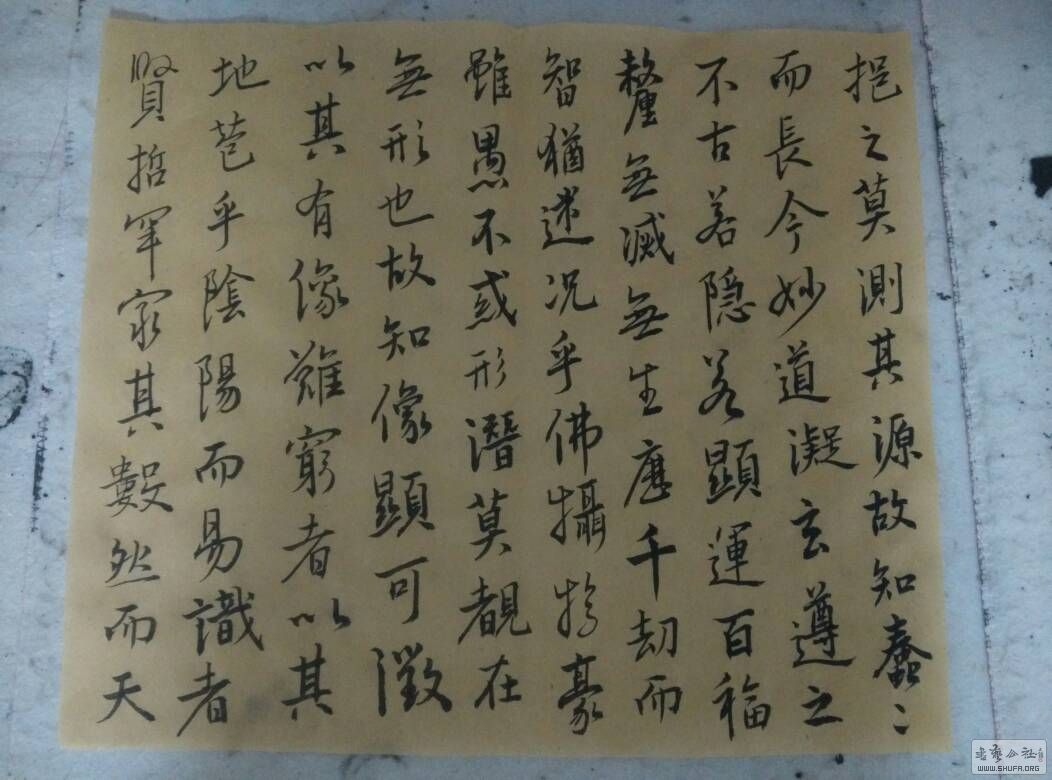 賢哲罕窮其數然而天
地苞乎陰陽而易識者
以其有像難窮者以其
無形也故知像顯可徵
雖愚不惑形潛莫覩在
智猶迷况乎佛攝於豪
釐無滅無生歷千劫而
不古若隱若顯運百福
而長今妙道凝玄遵之
挹之莫測其源故知蠢〻
书艺公社
WWW.SHUFA.ORG